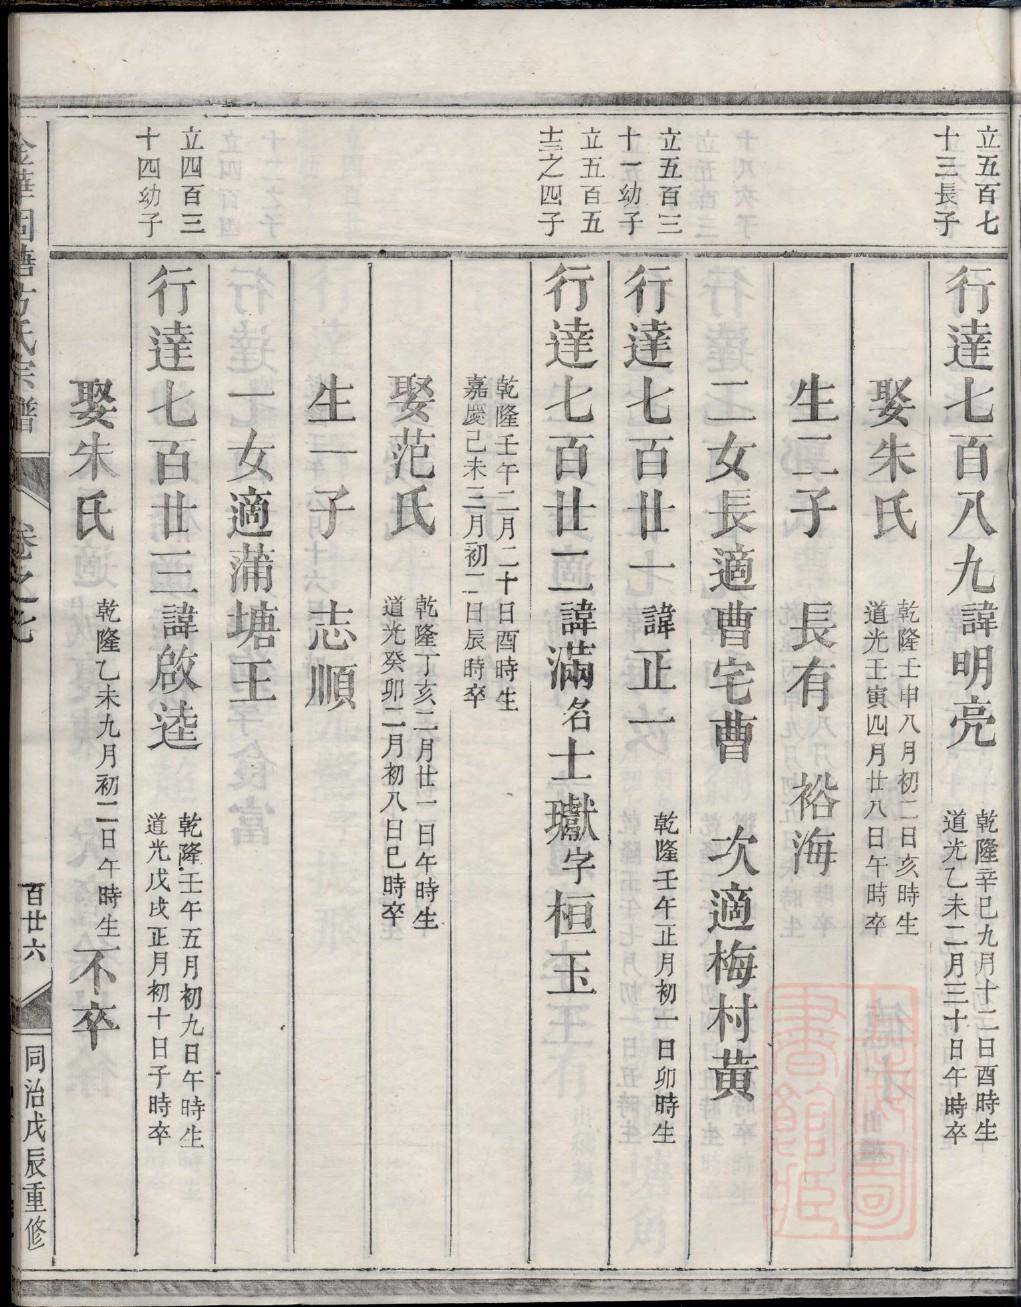 立五百七
十三長子
行達七百八九諱明亮
乾隆辛巳九月十二日酉時生
道光乙未二月三十日午時卒
娶朱氏
乾隆壬申八月初二日亥時生
道光壬寅四月廿八日午時卒
生二子 長有 裕海
二女長適曹宅曹 次適梅村黃
立五百三
十一幼子
行達七百廿一諱正一
乾隆壬午正月初一日卯時生
立五百五
十三之四子
行達七百廿二諱滿名士獄字桓玉
乾隆壬午二月二十日酉時生
嘉慶己未三月初二日辰時卒
娶范氏
乾隆丁亥二月廿一日午時生
道光癸卯二月初八日巳時卒
生一子 志順
一女適蒲塘王
立四百三
十四幼子
行達七百廿三諱啟逵
乾隆壬午五月初九日午時生
道光戊戌正月初十日子時卒
娶朱氏
乾隆乙未九月初二日午時生
不卒
方氏宗譜
卷之七
百廿六
同治戊辰重修